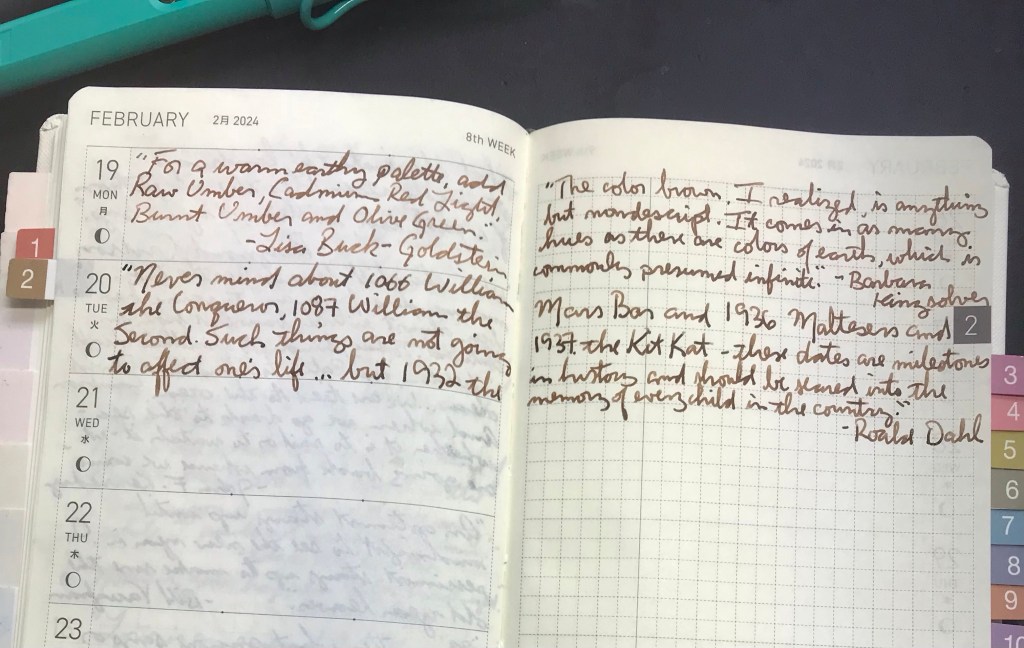 FEBRUARY 2月 2024
8th WEEK
19
MON
月
"For a warm earthy palette, add
Raw Umber, Cadmium Red Light,
Burnt Umber and Olive Green."
-Lisa Buck-Goldstein
20
TUE
火
"Never mind about 1066 William
the Conqueror, 1087 William the
Second. Such things are not going
to affect one's life... but 1932 the
21
WED
水
22
THU
木
23
"The color brown, I realized, is anything
but nondescript. It comes in as many
hues as there are colors of earth, which is
commonly presumed infinite." -Barbara
Kingsolver
Mars Bar and 1936 Maltesers and
1937 the Kit Kat - these dates are milestones
in history and should be seared into the
memory of every child in the country."
-Roald Dahl
1
2
2
3
4
5
6
7
8
9
10